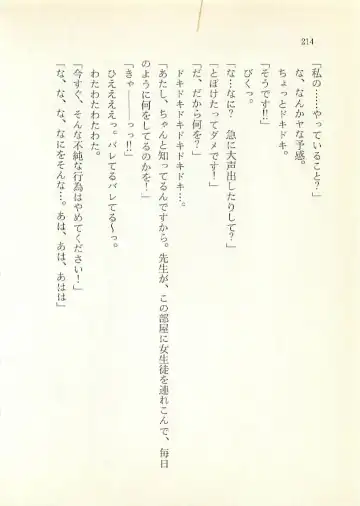 214
「私の……やっていること？」
な、なんかヤな予感。
ちょっとドキドキ。
「そうです!!」
びくっ。
「な…なに？　急に大声出したりして？」
「とぼけたってダメです！」
「だ、だから何を？」
ドキドキドキドキドキドキ…。
「あたし、ちゃんと知ってるんですから。先生が、この部屋に女生徒を連れこんで、毎日
のように何をしてるのかを！」
「きゃ――――っっ!!」
ひえええええっ。バレてるバレてる〜っ。
わたわたわたわた。
「今すぐ、そんな不純な行為はやめてください！」
「な、な、な、なにをそんな…。あは、あは、あはは」